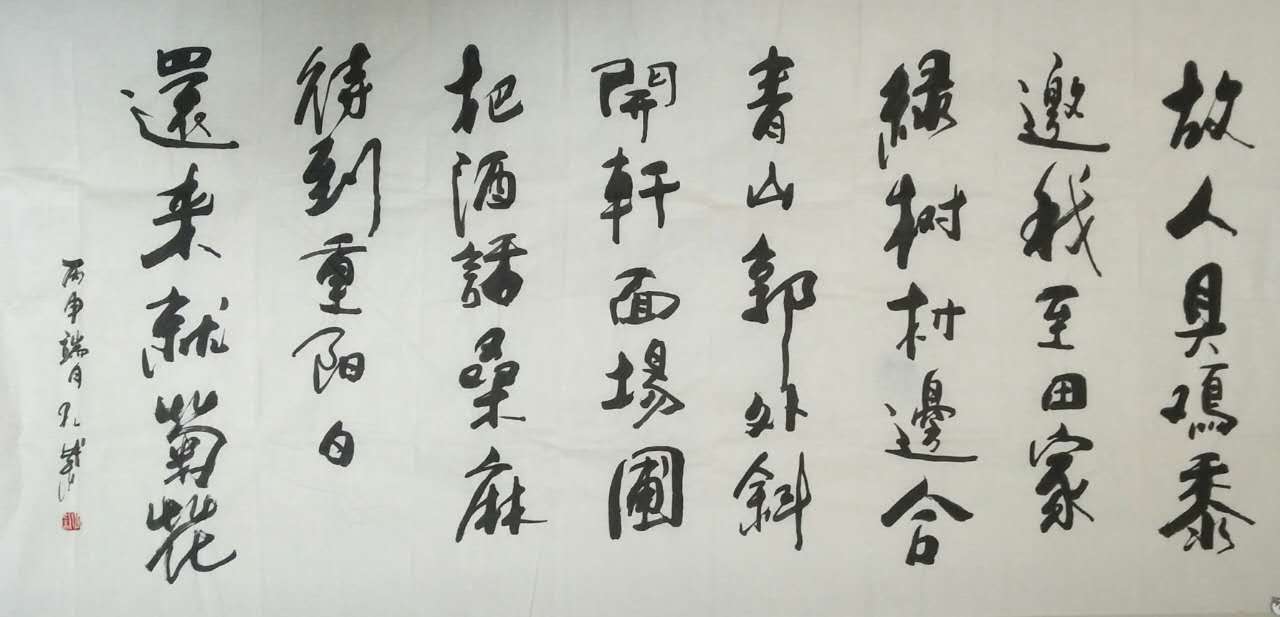 故人具鸡黍
邀我至田家
绿树村邊合
青山郭外斜
開軒面場圃
把酒話桑麻
待到重阳日
還来就菊花
丙申端月孔